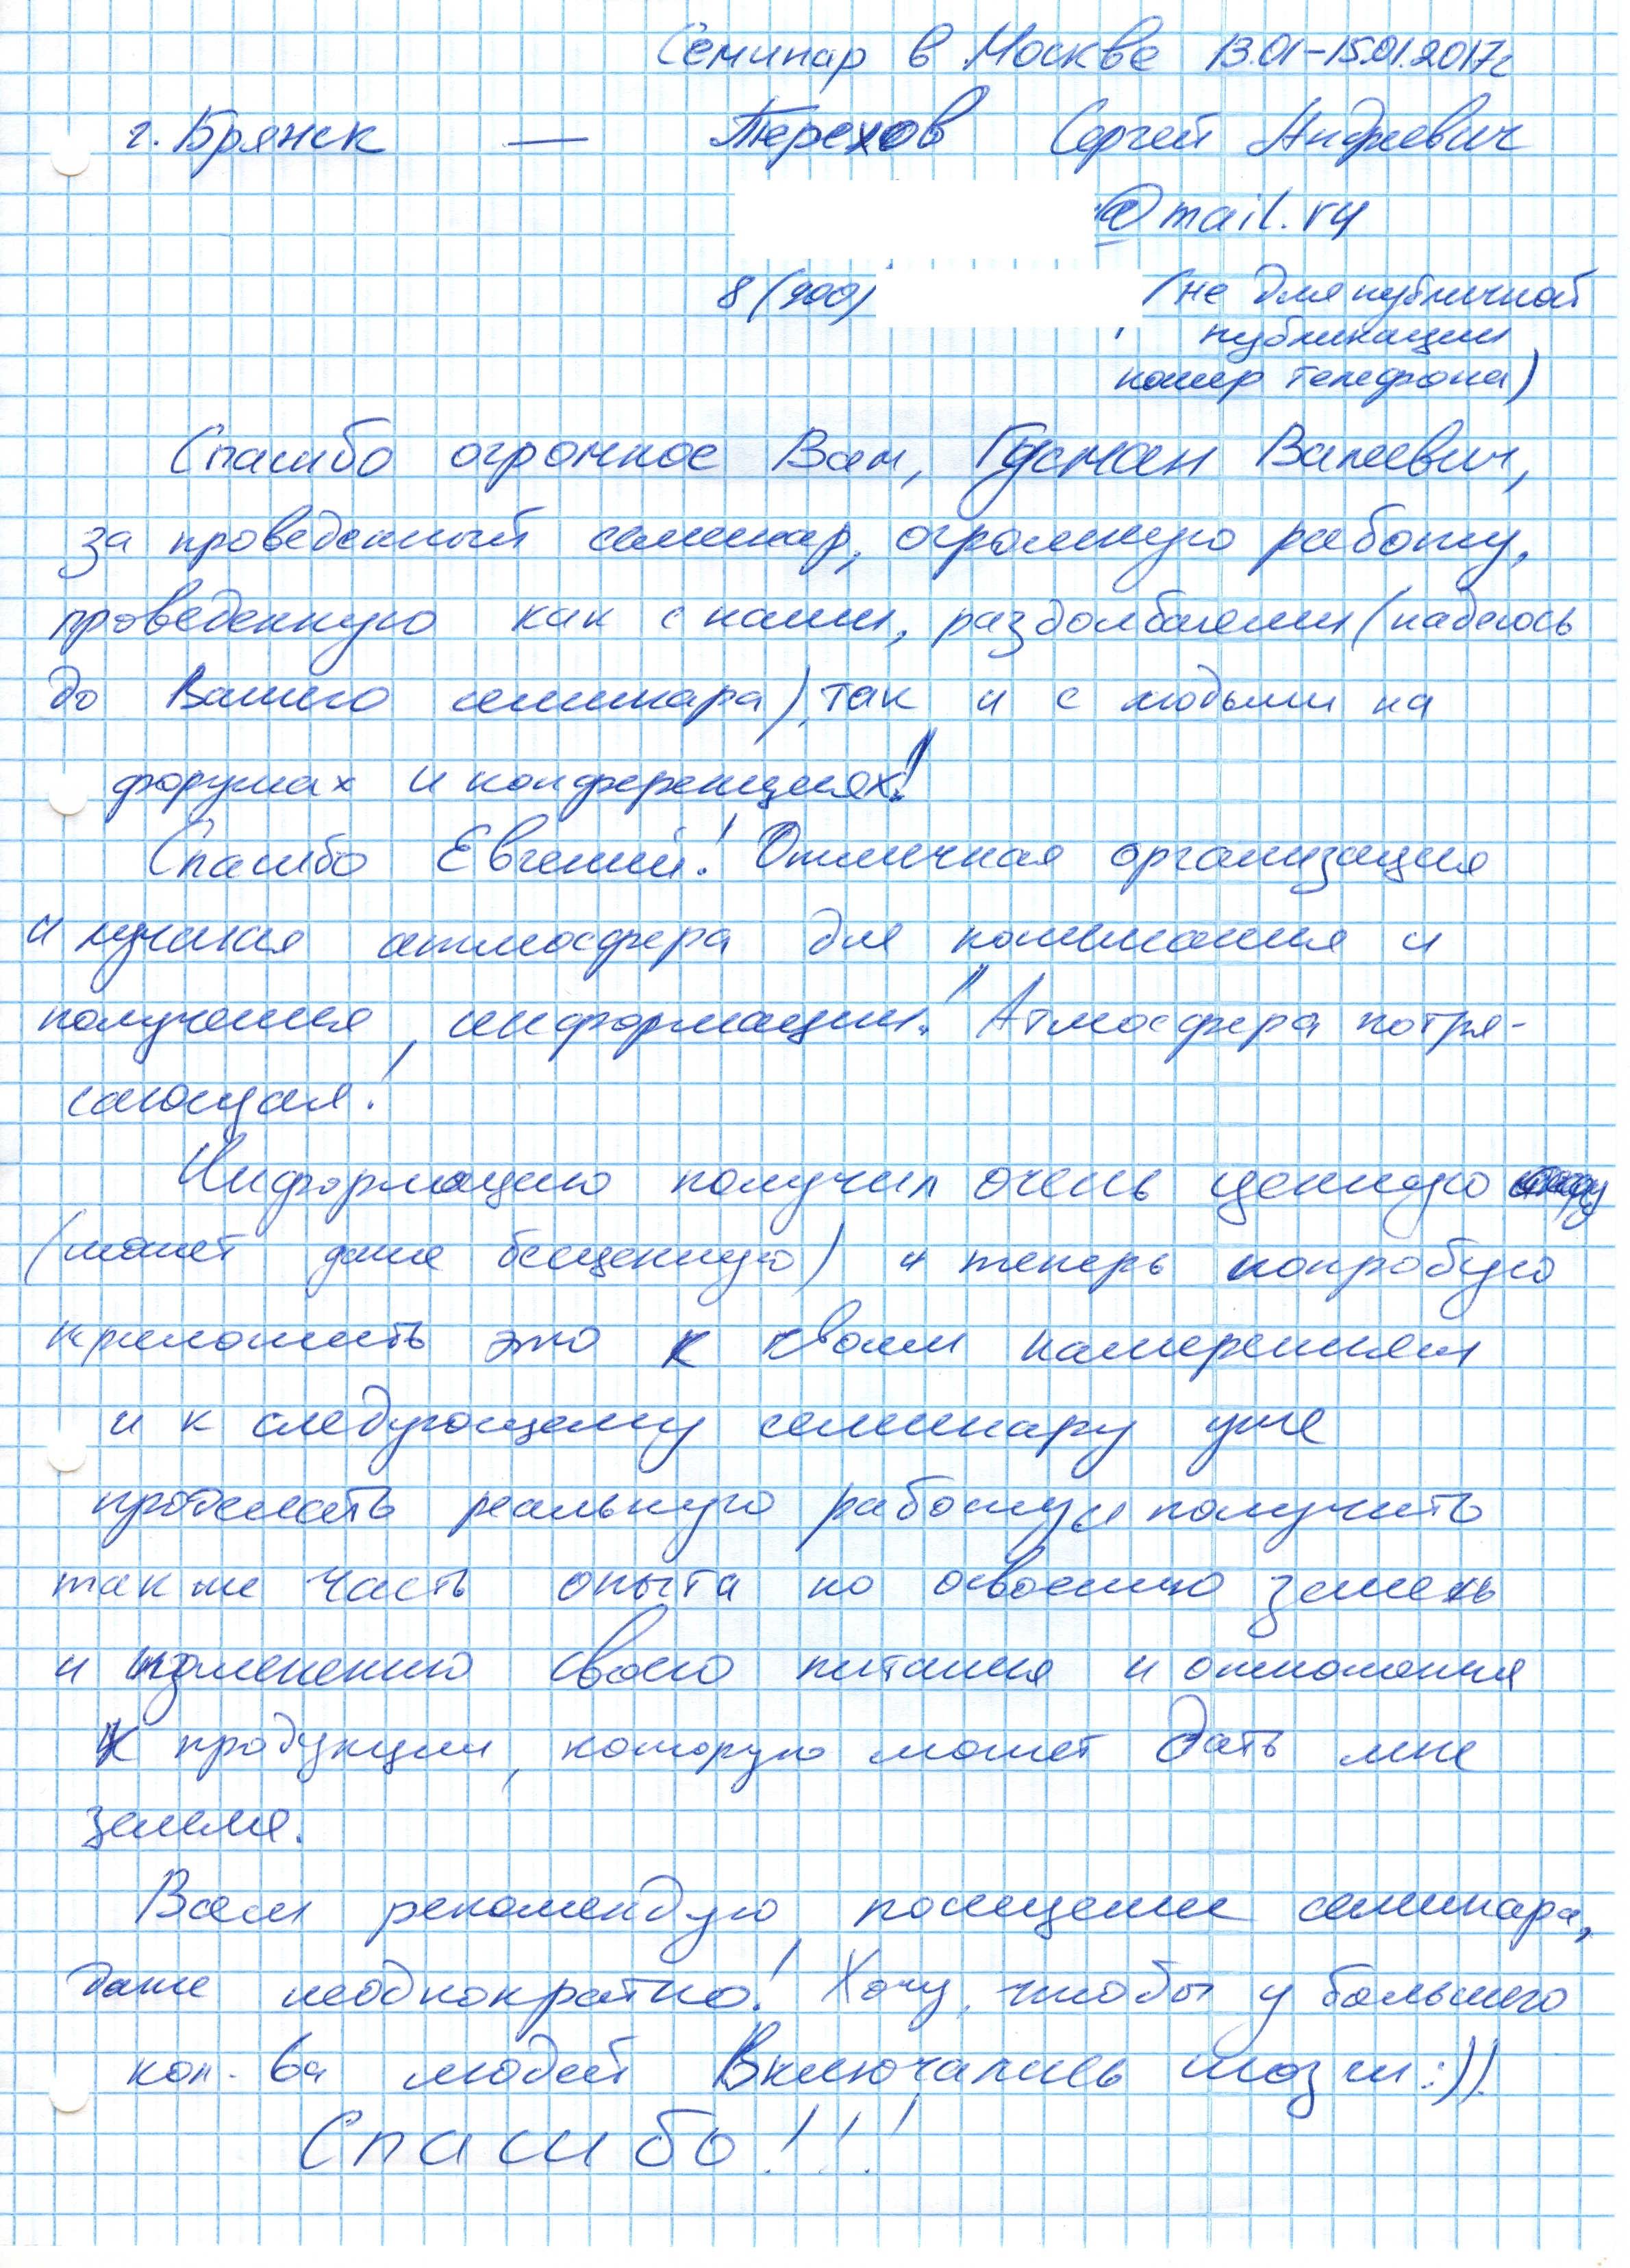 Семинар в Москве 13.01-15.01.2017г
г. Брянск — Терехов Сергей Андреевич
@mail.ru
8(900) (не для публичной
публикации
номер телефона)
Спасибо огромное Вам, Гусман Валеевич,
за проведенный семинар, огромную работу,
проведенную как с нами, раздолбаями (надеюсь
до Вашего семинара), так и с людьми на
форумах и конференциях!
Спасибо Евгений! Отличная организация
и нужная атмосфера для понимания и
получения информации! Атмосфера потря-
сающая!
Информацию получил очень ценную
(может даже бесценную) и теперь попробую
приложить это к своим намерениям
и к следующему семинару уже
проделать реальную работу и получить
также часть опыта по освоению земель
и изменению своего питания и отношения
к продукции, которую может дать мне
земля.
Всем рекомендую посещение семинара,
даже неоднократно! Хочу, чтобы у большего
кол-ва людей включались мозги :)).
Спасибо!!!